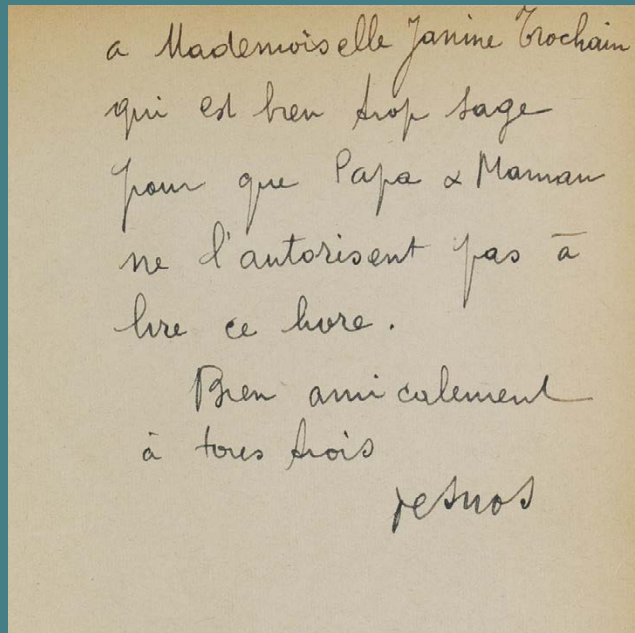 a Mademoiselle Janine Trochain
qui est bien trop sage
pour que Papa & Maman
ne l'autorisent pas à
lire ce livre.
Bien amicalement
à tous trois
Desnos